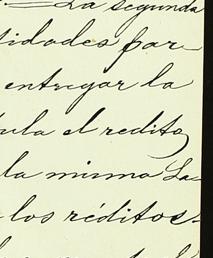 La segunda
tidades par-
entregar la
ula el redito
la misma La-
los réditos